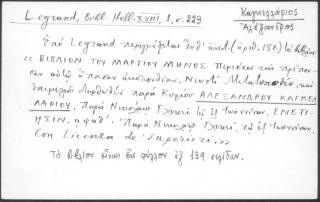 Legrand, Bibl. Hell. XVIII, 1, σ. 223
Καγκελλάριος
Ἀλέξανδρος
Ὑπὸ Legrand περιγράφεται (ἀριθ. 186) τὸ βιβλίον
« ΒΙΒΛΙΟΝ ΤΟΥ ΜΑΡΤΙΟΥ ΜΗΝΟΣ Περιέχον τὴν πρέπου-
σαν αὐτῷ ἅπασαν ἀκολουθίαν. Νεωστὶ Μετατυπωθέν, καὶ
ἐπιμελῶς διορθωθὲν παρὰ Κυρίου ΑΛΕΞΑΝΔΡΟΥ ΚΑΓΚΕΛ-
ΛΑΡΙΟΥ. Παρὰ Νικολάῳ Γλυκεῖ τῷ ἐξ Ἰωαννίνων. ΕΝΕΤΙ-
ΗΣΙΝ. Παρὰ Νικολάῳ Γλυκεῖ, τῷ ἐξ Ἰωαννίνων.
Con Licenza de' Superiori. »
Τὸ βιβλίον εἶναι εἰς φύλλον ἐξ 134 σελίδων.